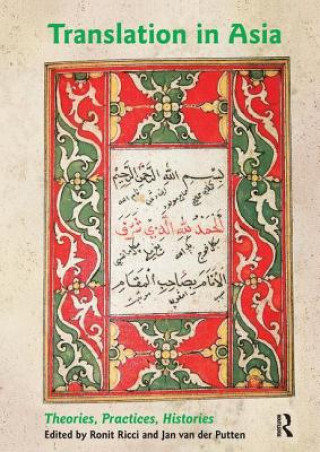 Translation in Asia
بِسْمِ اللهِ الرَّحْمٰنِ الرَّحِيْمِ
اَلْحَمْدُ لِلّٰهِ الَّذِيْ شَرَّفَ
الْاَنَامَ بِصَاحِبِ الْمَقَامِ
Theories, Practices, Histories
Edited by Ronit Ricci and Jan van der Putten
R